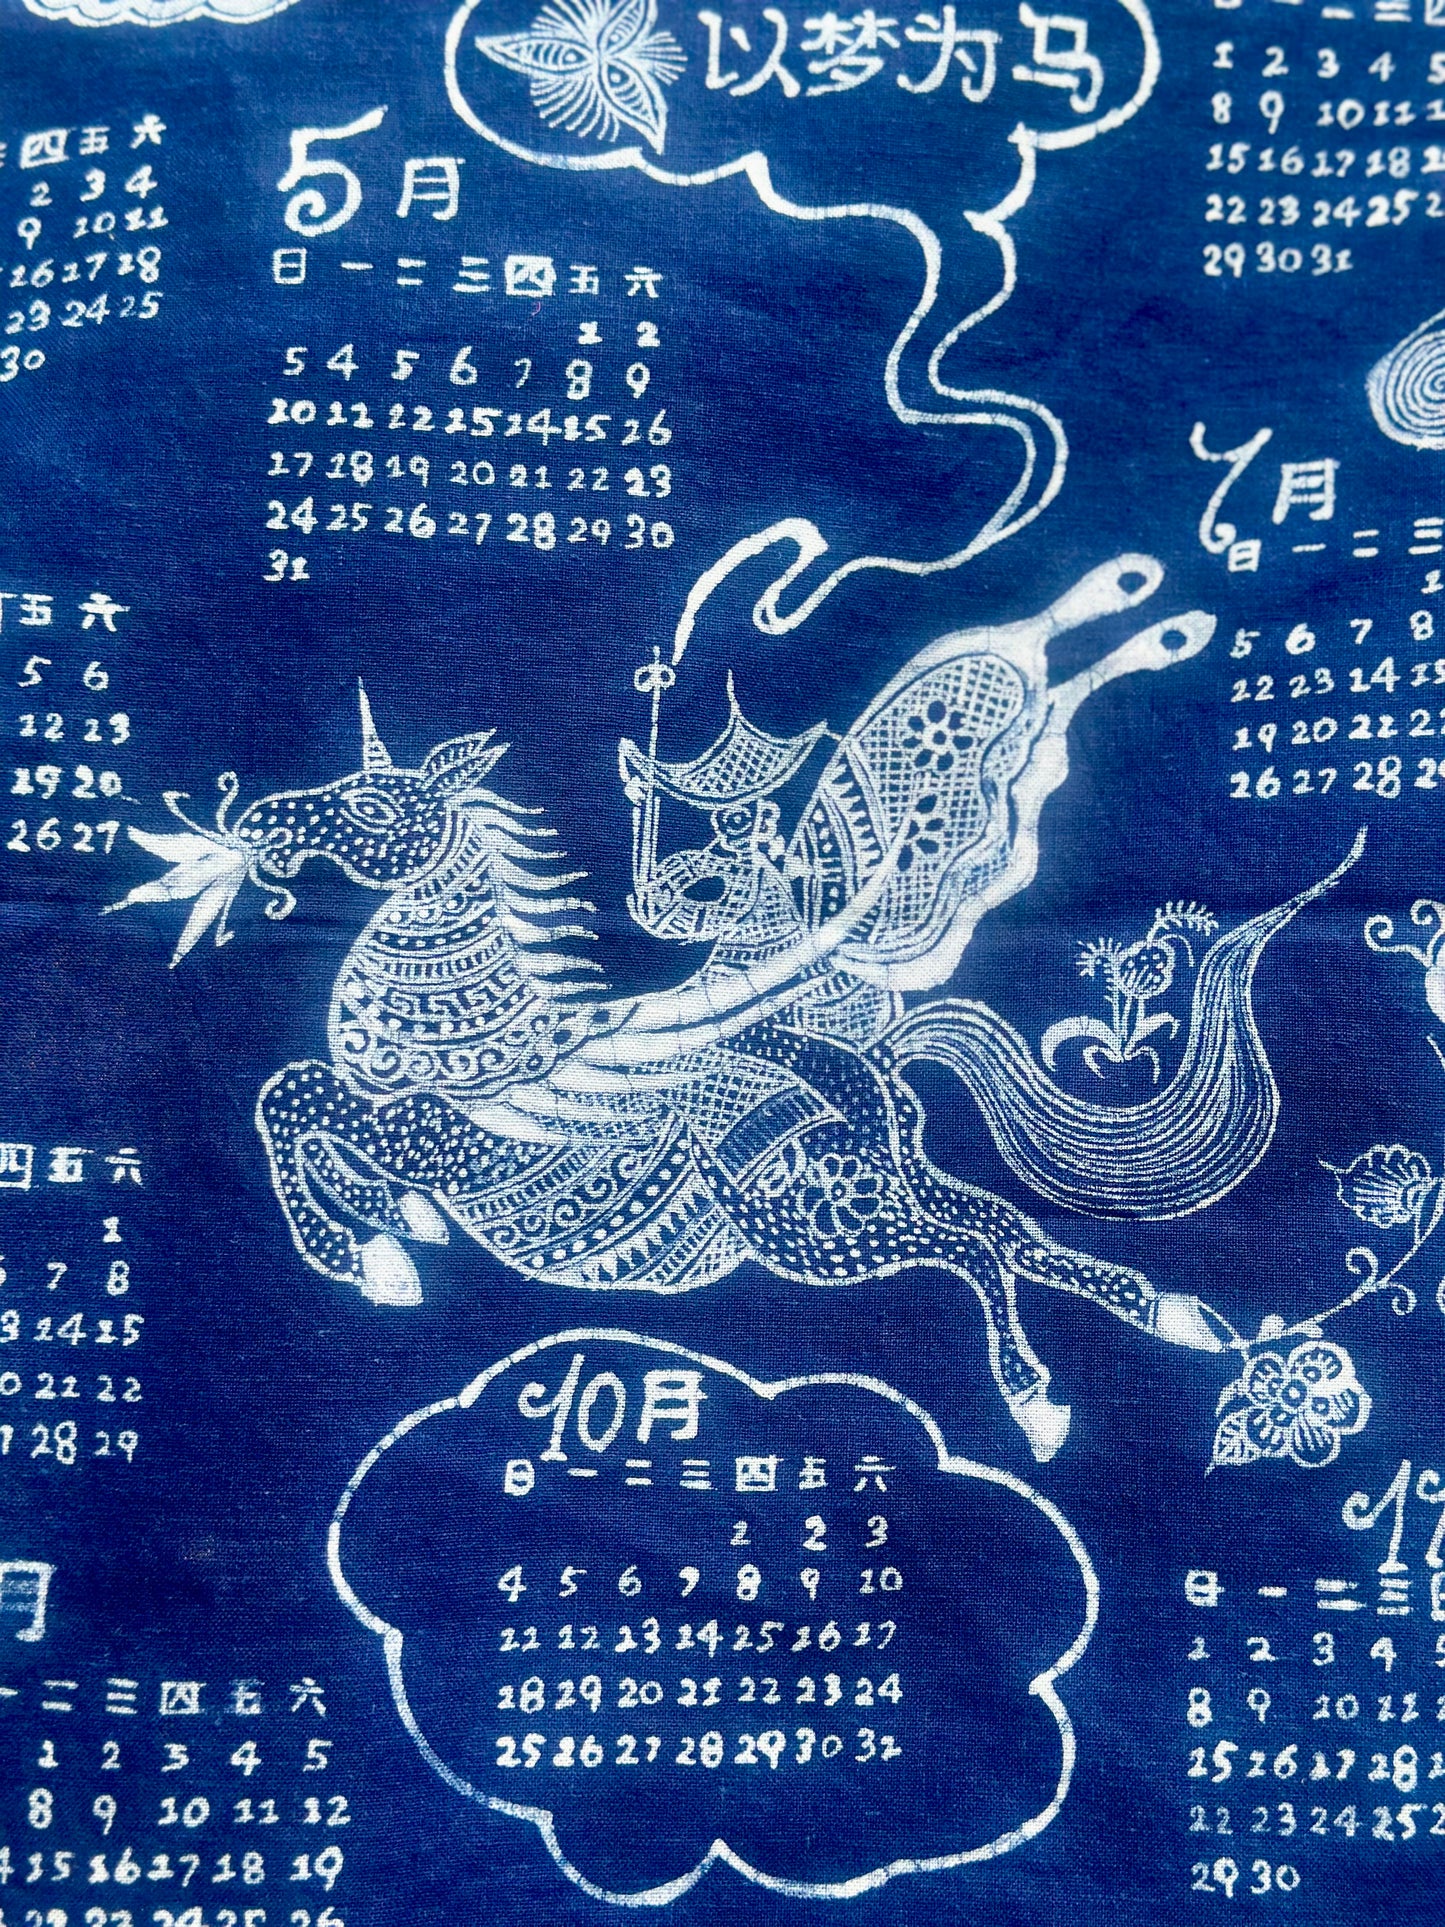 以梦为马
一 二 三 四
1 2 3 4 5
8 9 10 11 1
15 16 17 18
22 23 24 25 2
29 30 31
四 五 六
2 3 4
9 10 11
26 27 28
23 24 25
30
5月
日 一 二 三 四 五 六
1 2
5 4 5 6 7 8 9
10 11 12 15 14 15 26
17 18 19 20 21 22 23
24 25 26 27 28 29 30
31
7月
日 一 二 三
1
5 6 7 8
22 23 14 15
19 20 21 22
26 27 28 29
五 六
5 6
12 23
19 20
26 27
四 五 六
1
7 8
3 14 15
0 21 22
28 29
10月
日 一 二 三 四 五 六
1 2 3
4 5 6 7 8 9 10
11 12 13 14 15 16 17
18 19 20 21 22 23 24
25 26 27 28 29 30 31
月
一 二 三 四 五 六
1 2 3 4 5
8 9 10 11 12
15 16 17 18 19
22 23 24 25 26
11
日 一 二 三
1 2 3 4 5
8 9 10 11
15 16 17 18
22 23 24 25 2
29 30